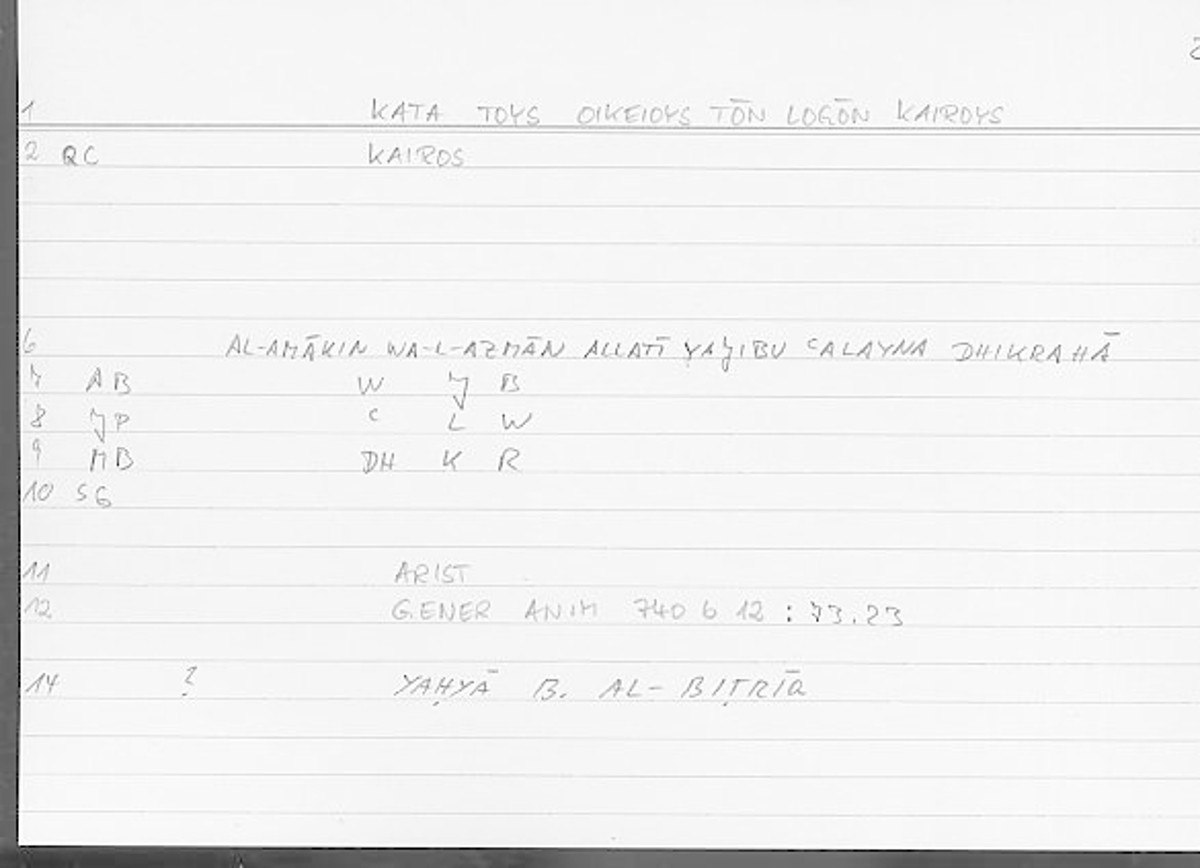 2
1 KATA TOYS OIKEIOYS TŌN LOGŌN KAIROYS
2 QC KAIROS
6 AL-AMĀKIN WA-L-AZMĀN ALLATĪ YAJIBU ᶜALAYNA DHIKRAHĀ
7 AB W J B
8 JP ᶜ L W
9 MB DH K R
10 SG
11 ARIST
12 GENER ANIM 740 b 12 : 73.23
14 ? YAḤYĀ B. AL-BIṬRĪQ